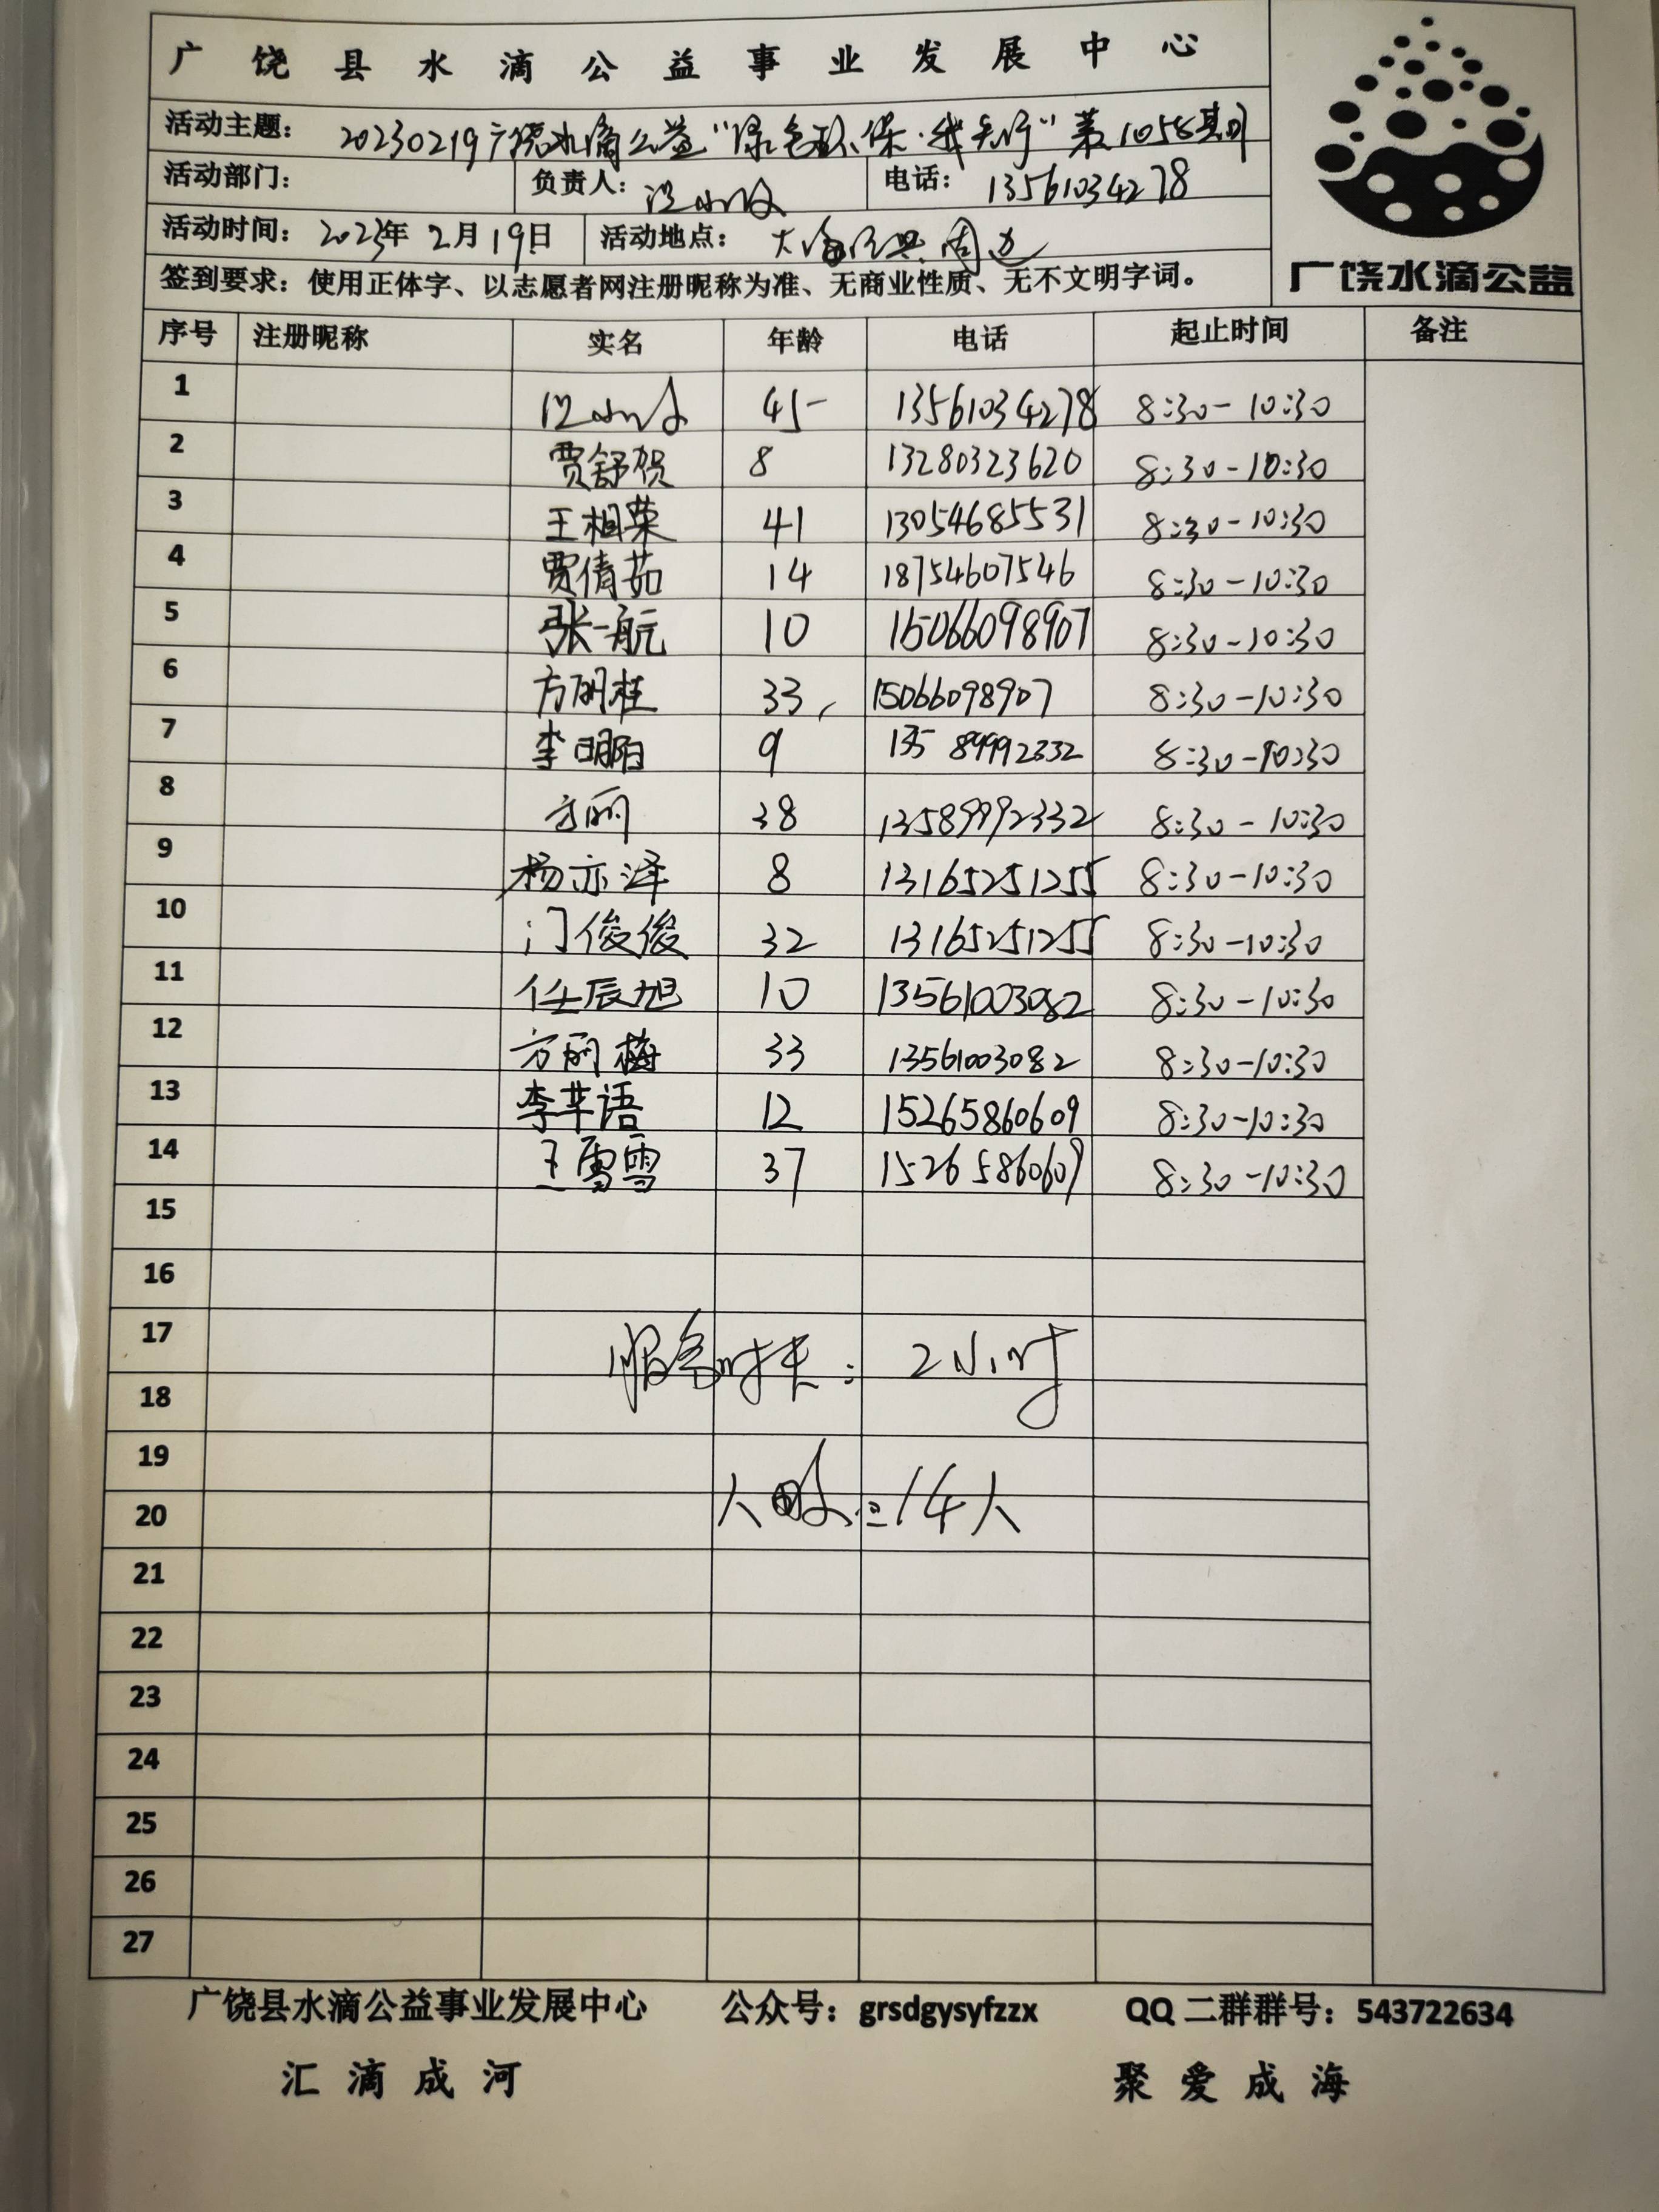 广饶县水滴公益事业发展中心
活动主题：20230219广饶水滴公益“绿色环保·我先行”第1055期
活动部门： 负责人： 电话：13561034278
活动时间：2023年2月19日 活动地点：大海 周边
广饶水滴公益
签到要求：使用正体字、以志愿者网注册昵称为准、无商业性质、无不文明字词。
序号 注册昵称 实名 年龄 电话 起止时间 备注
1 45 13561034278 8:30-10:30
2 贾舒贺 8 13280323620 8:30-10:30
3 王相荣 41 13054685531 8:30-10:30
4 贾倩茹 14 18754607546 8:30-10:30
5 张一航 10 15066098907 8:30-10:30
6 方明桂 33 15066098907 8:30-10:30
7 李明阳 9 13589992332 8:30-10:30
8 方丽 38 13589992332 8:30-10:30
9 杨亦泽 8 13165251255 8:30-10:30
10 门俊俊 32 13165251255 8:30-10:30
11 任辰旭 10 13561003082 8:30-10:30
12 方丽梅 33 13561003082 8:30-10:30
13 李芊语 12 15265860609 8:30-10:30
14 王雪雪 37 15265860609 8:30-10:30
15
16
17
服务时长：2小时
18
19
人数：14人
20
21
22
23
24
25
26
27
广饶县水滴公益事业发展中心 公众号：grsdgysyfzzx QQ二群群号：543722634
汇滴成河 聚爱成海